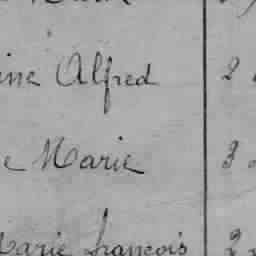 ine Alfred 2
e Marie 3
Marie françois 2